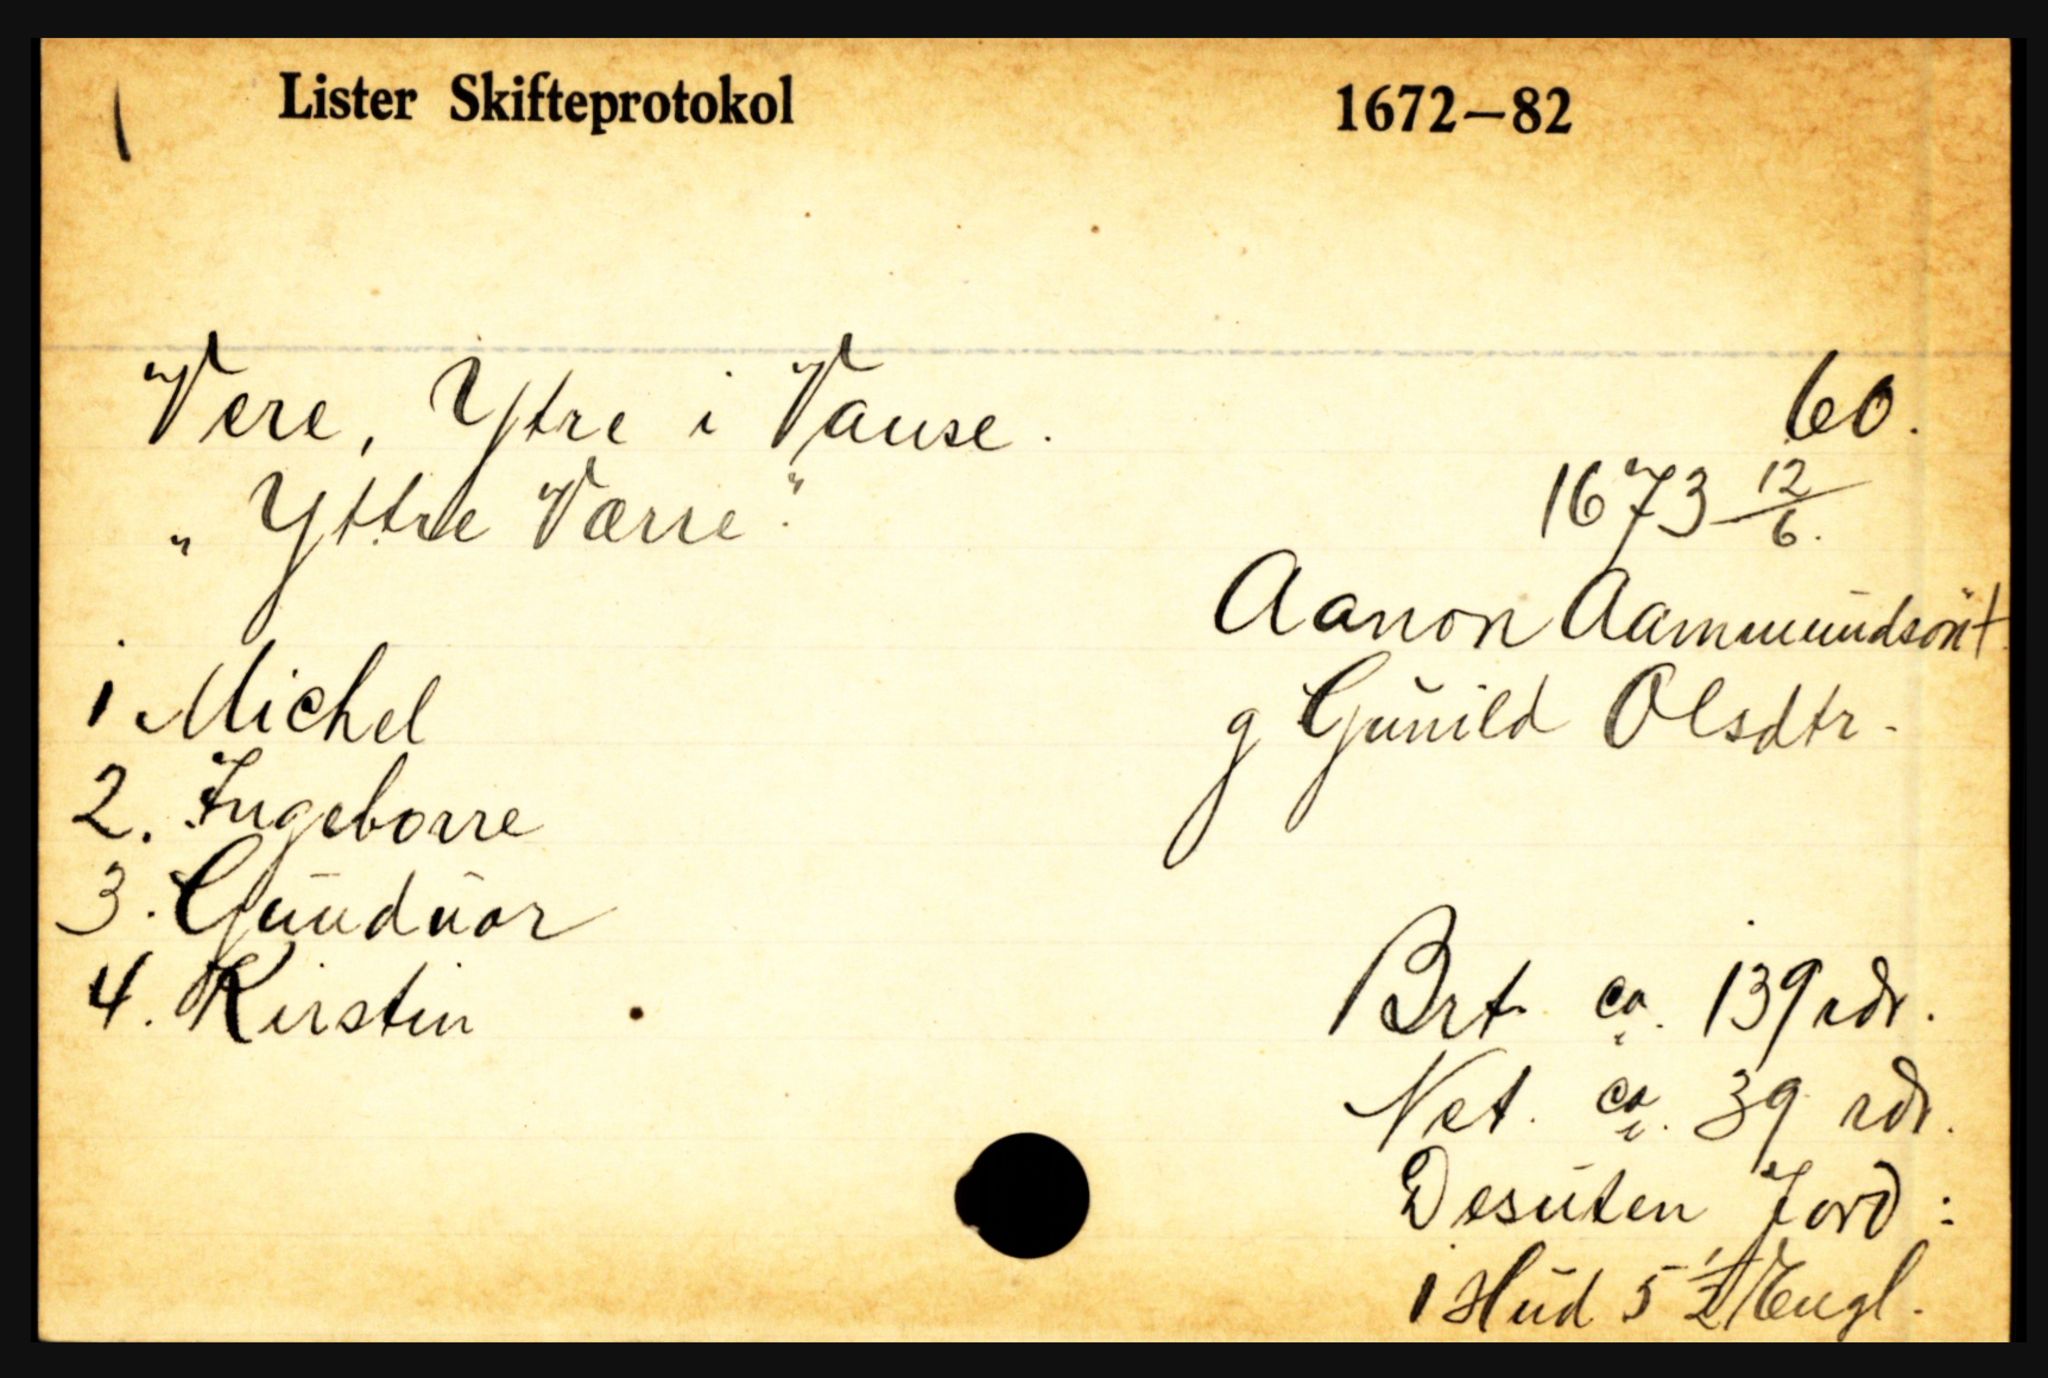 Lister Skifteprotokol 1672–82
Vere, Ytre i Vanse. 60.
„ Yttre Værre". 1673 12/6.
Aanon Aammundsøn †
1 Michel g Gunild Olsdtr.
2. Ingeborre
3. Gundvor
4. Kirstin Brt. ca. 139 rdr.
Net. ca. 39 rdr.
Desuten Jord:
1 Hud 5 1/2 Engl.